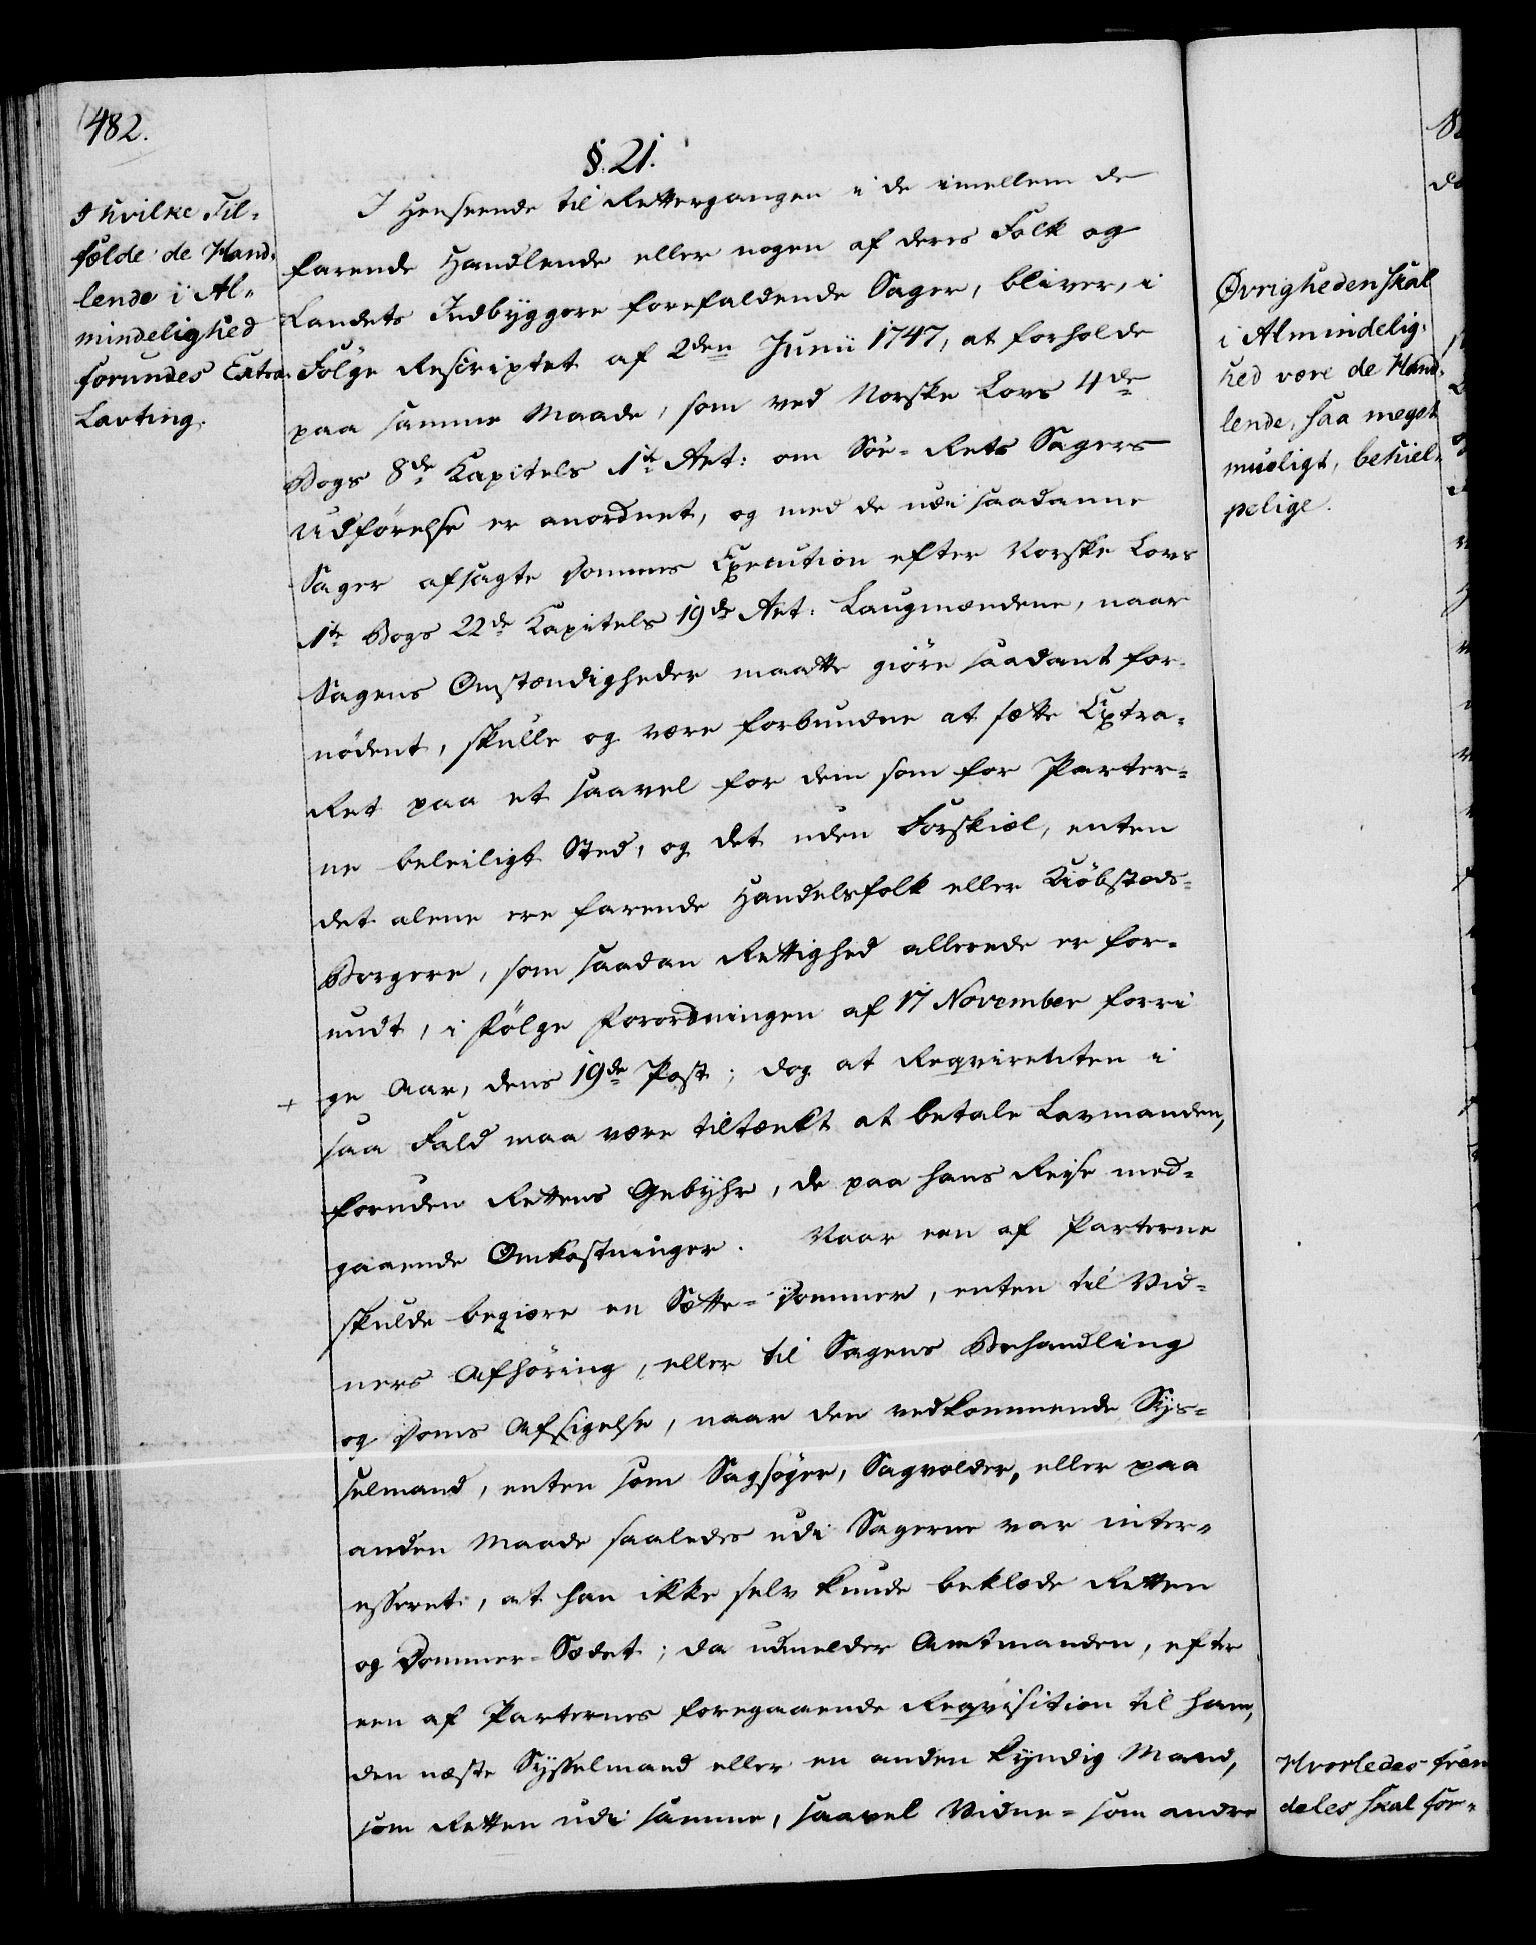 482.
§. 21.
I hvilke Til-
fælde de Hand-
lende i Al-
mindelighed
forundes Extra
Lavting.
I Henseende til Rettergangen i de imellem de
farende Handlende eller nogen af deres Folk og
Landets Indbyggere forefaldende Sager, bliver, i
Følge Rescriptet af 2den Junii 1747, at forholde
paa samme Maade, som ved Norske Lovs 4de
Bogs 8de Kapitels 1te Art: om Søe-Rets Sagers
Udførelse er anordnet, og med de udi saadanne
Sager afsagte Dommes Execution efter Norske Lovs
1te Bogs 22de Kapitels 19de Art. Laugmændene, naar
Sagens Omstændigheder maatte giöre saadant for-
nödent, skulle og være forbundne at sætte Extra-
Ret paa et saavel for dem som for Parter-
ne beleiligt Sted, og det uden Forskiæl, enten
det alene ere farende Handelsfolk eller Kiöbstæds-
Borgere, som saadan Rettighed allerede er for-
undt, i Følge Forordningen af 17 November forri
ge Aar, dens 19de Post; dog at Reqvirenten i
+
saa Fald maa være tiltænkt at betale Lavmanden,
foruden Rettens Gebyhr, de paa hans Reise med-
gaaende Omkostninger. Naar een af Parterne
skulde begiære en Sætte-Dommer, enten til Vid-
ners Afhöring, eller til Sagens Behandling
og Doms Afsigelse, naar den vedkommende Sys-
selmand, enten som Sagsöger, Sagvolder, eller paa
anden Maade saaledes udi Sagerne var inter-
esseret, at han ikke selv kunde beklæde Retten
og Dommer-Sædet; da udmelder Amtmanden, efter
een af Parternes foregaaende Reqvisition til ham,
den næste Sysselmand eller en anden kyndig Mand,
som Retten udi samme, saavel Vidne- som andre
Øvrigheden skal
i Almindelig-
hed være de Hand-
lende, saa meget
mueligt, behiel-
pelige.
Hvorledes frem
deles skal for-